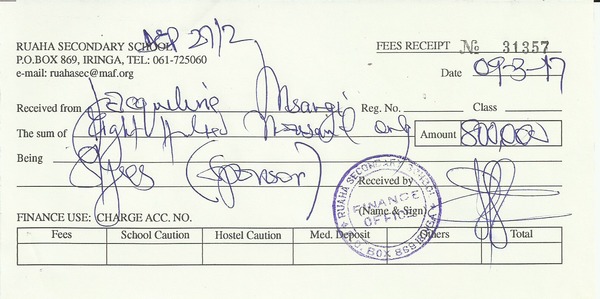 RUAHA SECONDARY SCHOOL 27/2
P.O.BOX 869, IRINGA, TEL: 061-725060
e-mail: ruahasec@maf.org
FEES RECEIPT № 31357
Date 09-3-17
Received from Jacqueline Msangi Reg. No. Class
The sum of Eight Hundred Thousand only Amount 800,000
Being Fees (Sponsor)
Received by
(Name & Sign)
RUAHA SECONDARY SCHOOL
FINANCE OFFICE
P.O. BOX 869 IRINGA
FINANCE USE: CHARGE ACC. NO.
Fees School Caution Hostel Caution Med. Deposit Others Total